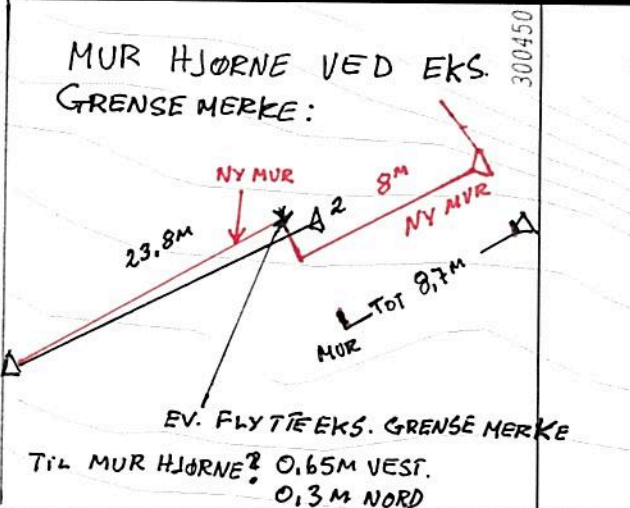 MUR HJØRNE VED EKS.
GRENSE MERKE:
300450
NY MUR
8M
2
NY MUR
23,8M
TOT 8,7M
MUR
EV. FLYTTE EKS. GRENSE MERKE
TIL MUR HJØRNE? 0,65M VEST.
0,3M NORD